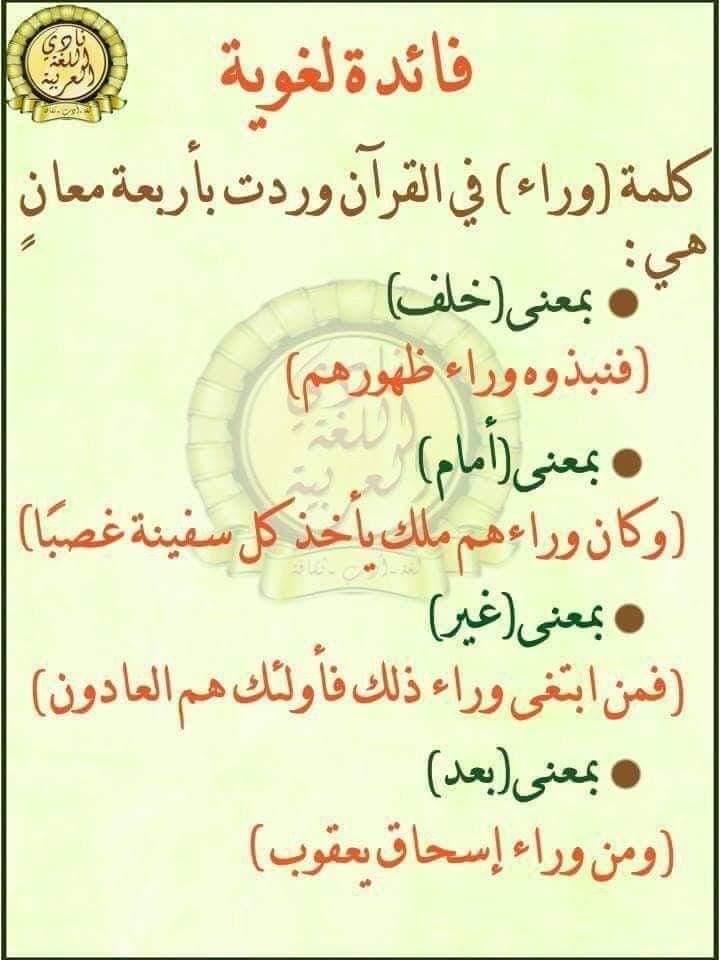 نادي
اللغة
العربية
لغة - أدب - ثقافة
فائدة لغوية
كلمة (وراء) في القرآن وردت بأربعة معانٍ
هي:
● بمعنى (خلف)
(فنبذوه وراء ظهورهم)
● بمعنى (أمام)
(وكان وراءهم ملك يأخذ كل سفينة غصبًا)
● بمعنى (غير)
(فمن ابتغى وراء ذلك فأولئك هم العادون)
● بمعنى (بعد)
(ومن وراء إسحاق يعقوب)
نادي
اللغة
العربية
لغة - أدب - ثقافة